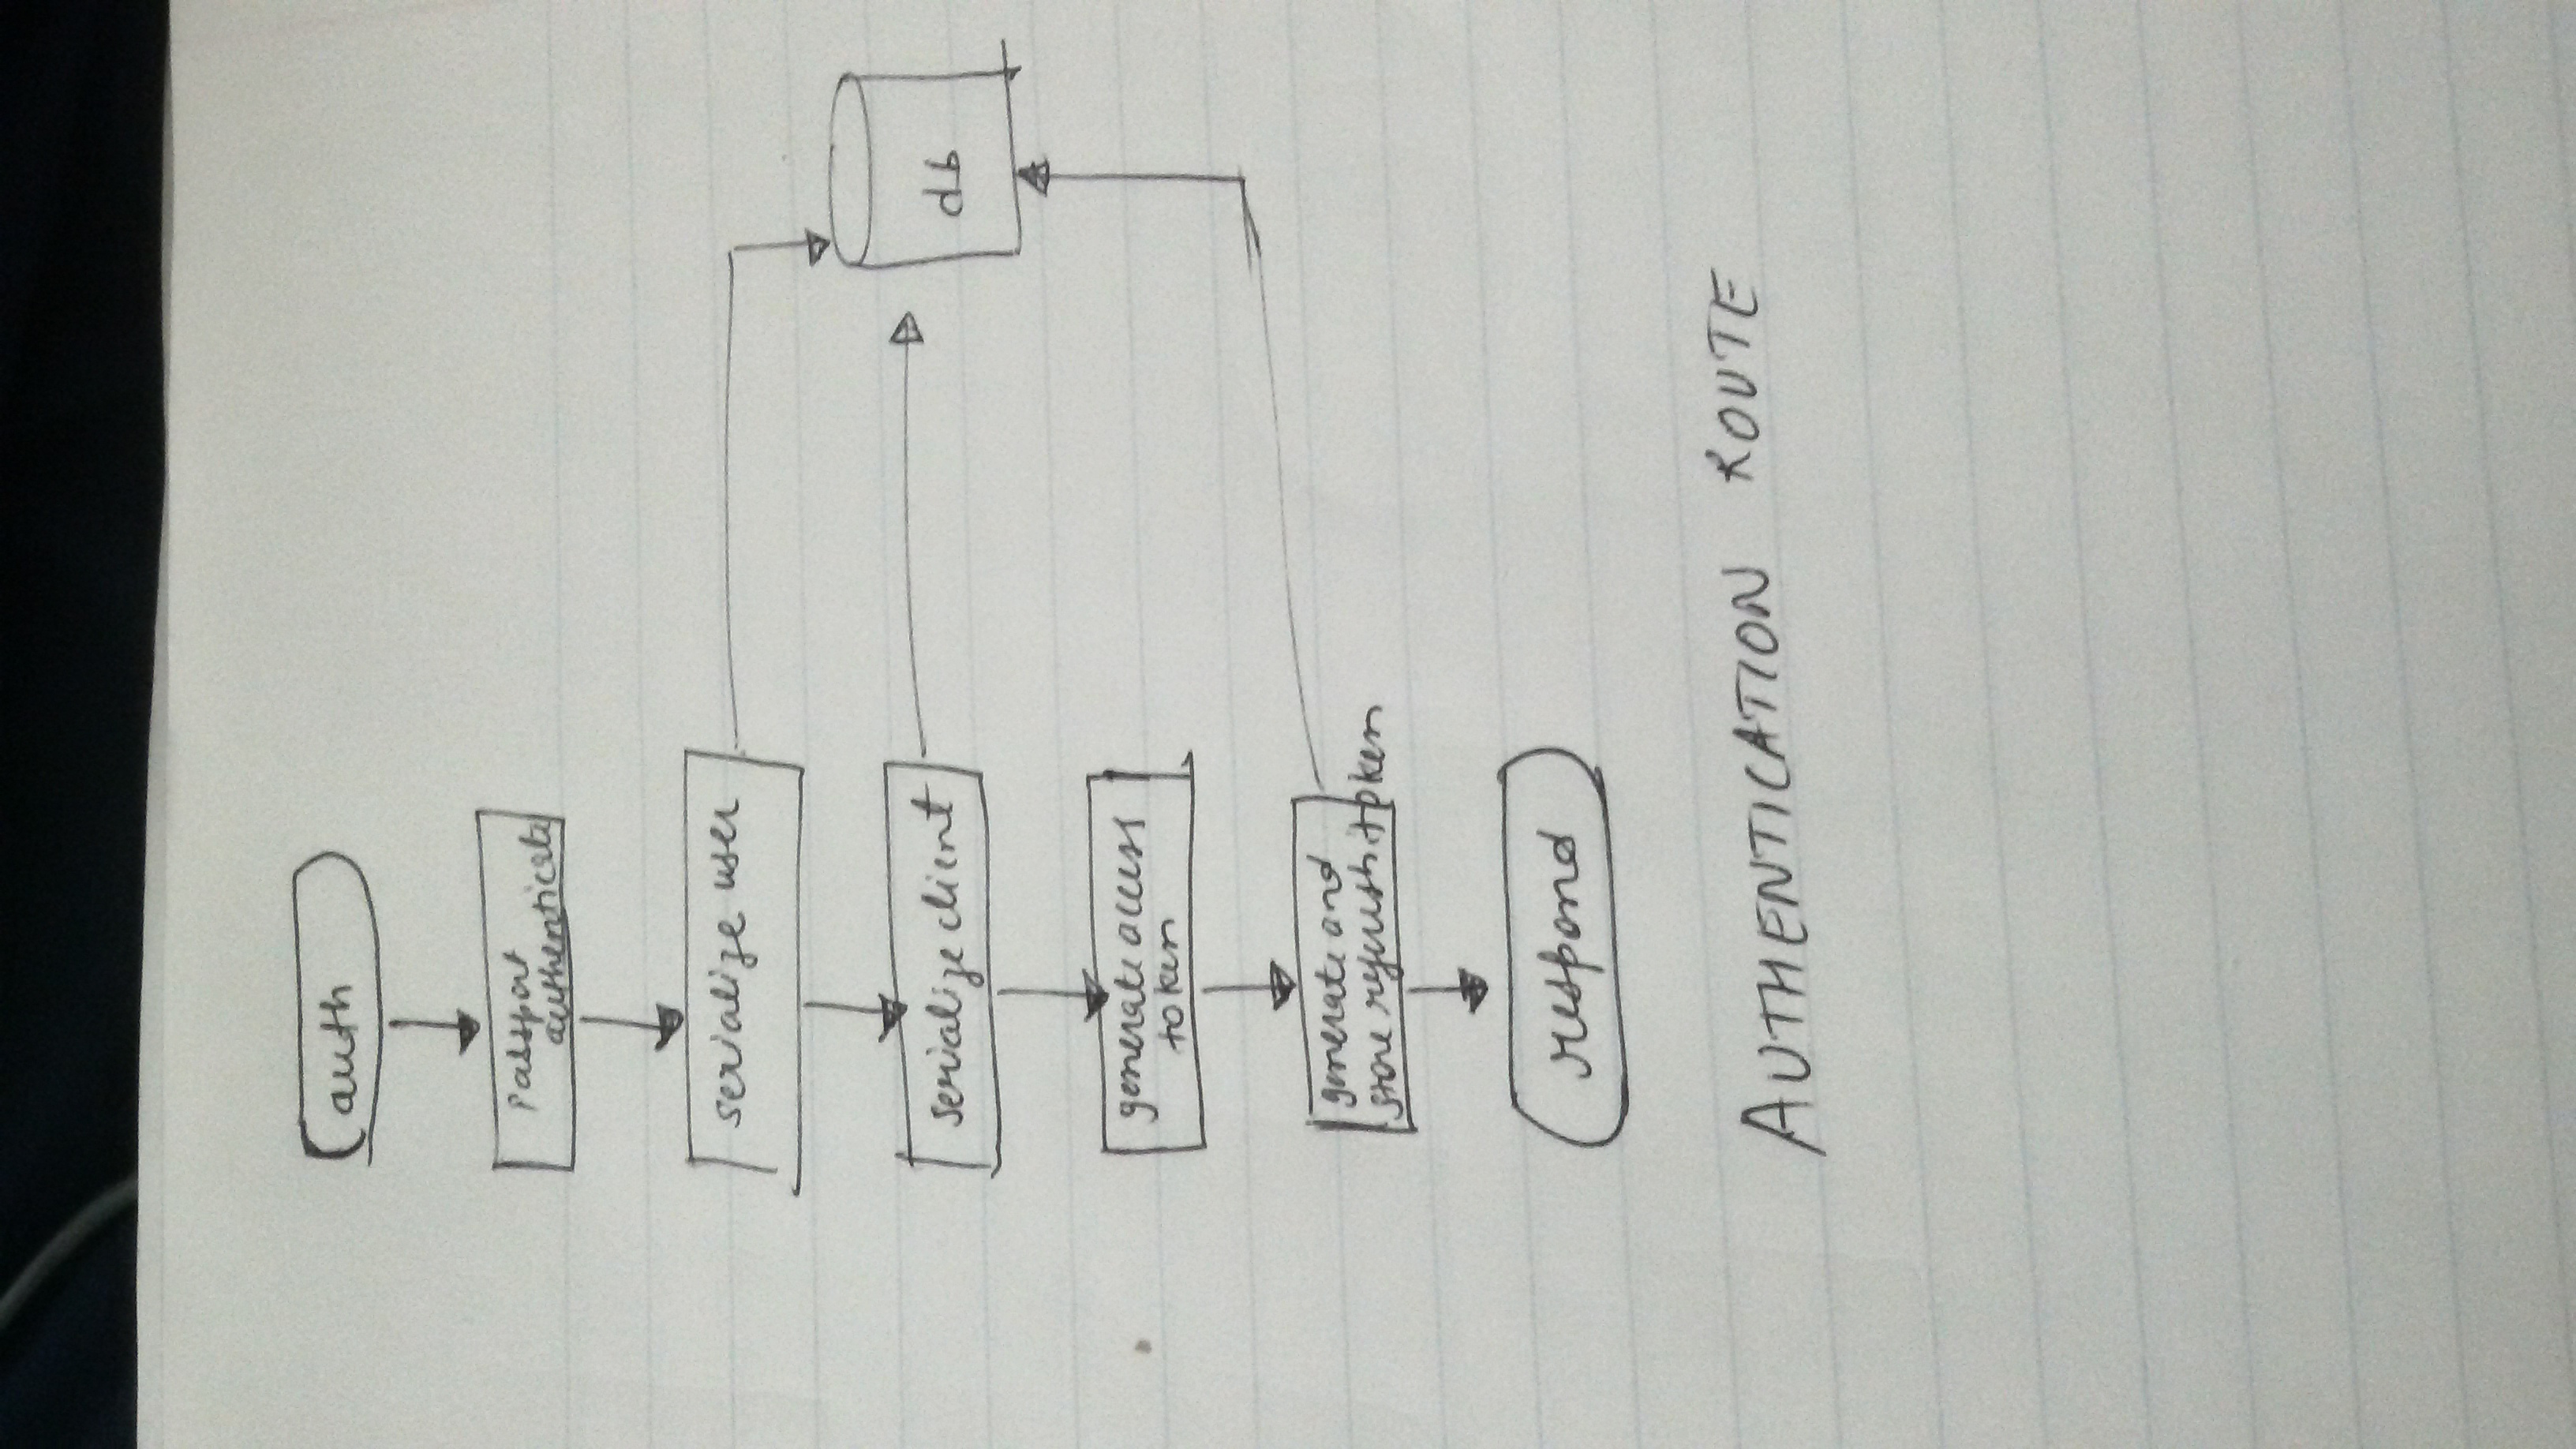 auth
Passport
authenticate
serialize user
serialize client
db
generate access
token
generate and
store refresh token
respond
AUTHENTICATION ROUTE